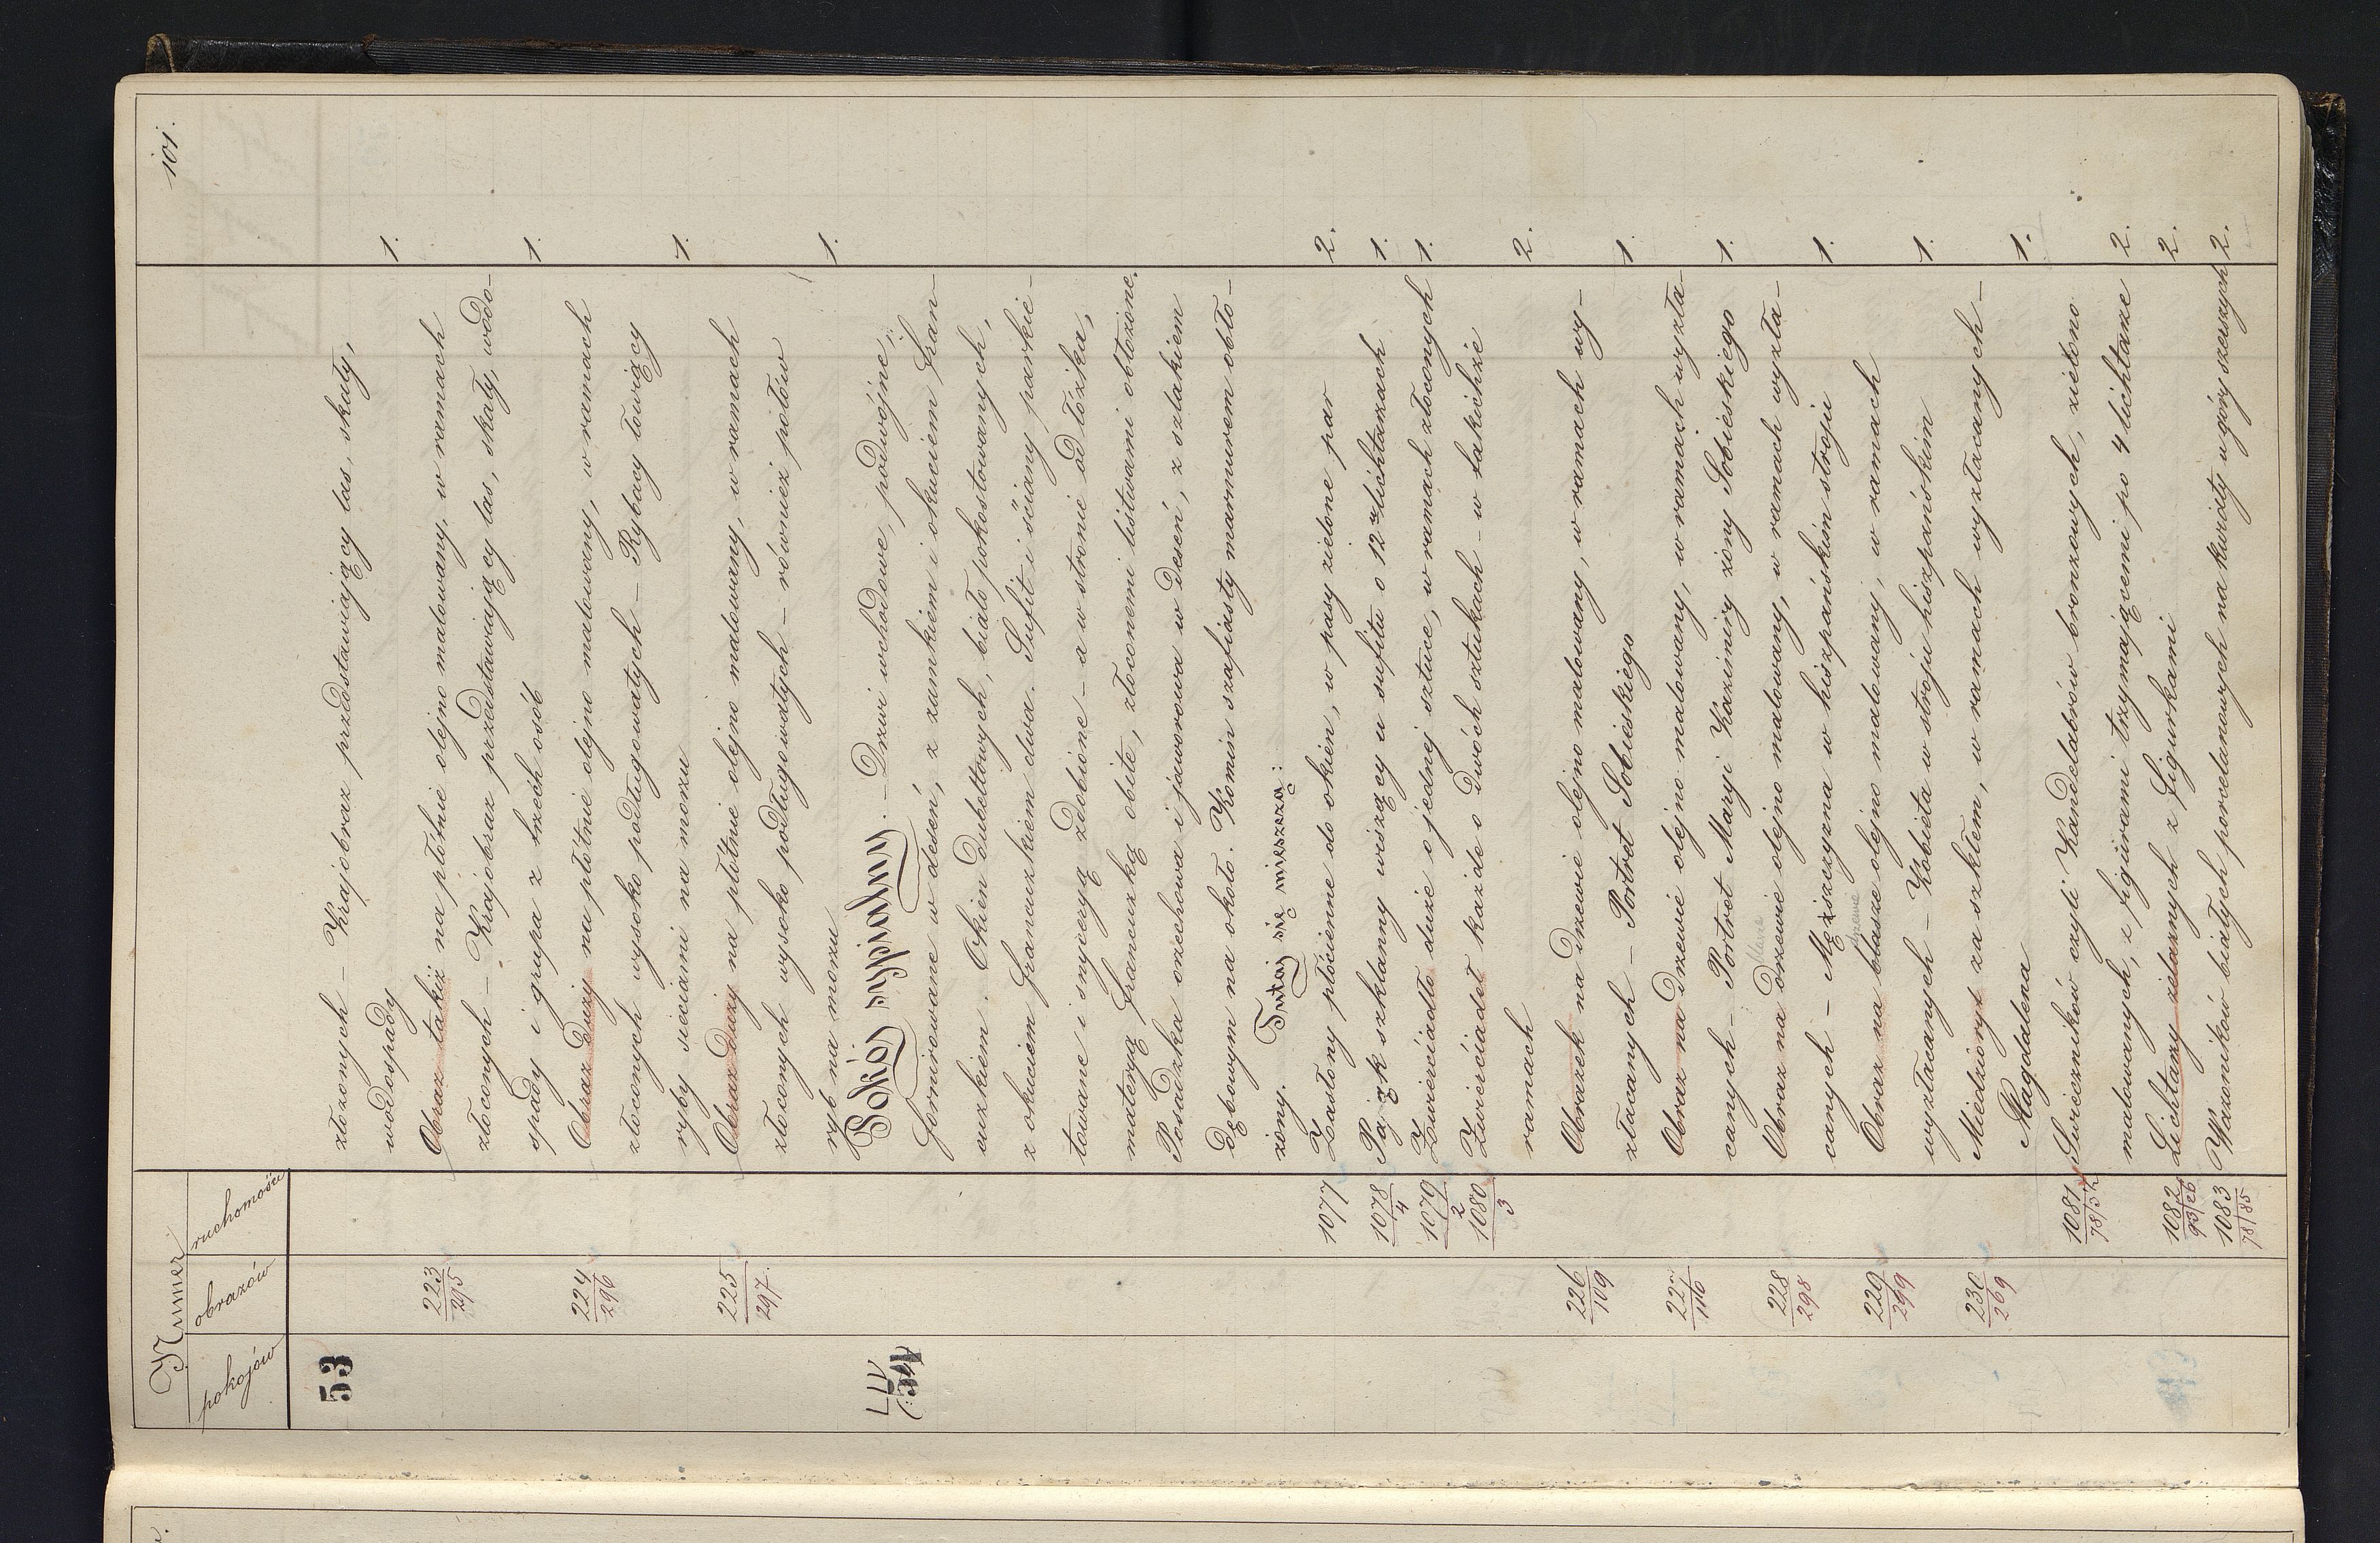 101.
Numer
pokojów obrazów ruchomości
53 złoconych – Krajobraz przedstawiający las, skały,
wodospady 1.
223/295 Obraz takiż na płótnie olejno malowany, w ramach
złoconych – Krajobraz przedstawiający las, skały, wodo-
spady i grupa z trzech osób 1.
224/296 Obraz duży na płótnie olejno malowany, w ramach
złoconych wysoko podługowatych – Rybacy łowiący
ryby sieciami na morzu 1.
225/297. Obraz duży na płótnie olejno malowany, w ramach
złoconych wysoko podługowatych – również połów
ryb na morzu 1.
LIV Pokój sypialny. – Drzwi wchodowe, podwójne,
(:54 fornirowane w deseń, z zamkiem i okuciem fran-
cuzkiem. Okien dubeltowych, biało pokostowanych,
z okuciem francuzkiem dwa. Sufit i ściany parkie-
towane i snyceryą zdobione – a w stronie od łóżka,
materyą francuzką obite, złoconemi listwami obłożone.
Posadzka orzechowa i jaworowa w deseń, z szlakiem
dębowym na około. Komin szafiasty marmurem obło-
żony. Tutaj się mieszczą:
1077 Zasłony płócienne do okien, w pasy zielone par 2.
1078/4 Pająk szklanny wiszący u sufitu o 12tu lichtarzach 1.
1079/2 Zwierciadło duże o jednej sztuce, w ramach złoconych 1.
1080/3 Zwierciadeł każde o dwóch sztukach – w takichże
ramach 2.
226/109 Obrazek na drzewie olejno malowany, w ramach wy-
złacanych – Portret Sobieskiego 1.
227/116 Obraz na drzewie olejno malowany, w ramach wyzła-
canych – Portret Maryi Kazimiry żony Sobieskiego 1.
228/298 Obraz na drzewie olejno malowany, w ramach wyzła-
canych – Mężczyzna w hiszpańskim stroju 1.
drzewie
229/299 Obraz na blasze olejno malowany, w ramach
wyzłacanych – Kobieta w stroju hiszpańskim 1.
230/269 Miedzioryt za szkłem, w ramach wyzłacanych –
Magdalena 1.
1081 Świeczników czyli Kandelabrów bronzowych, zielono
malowanych, z figurami trzymającemi po 4 lichtarze 2.
1082/93/26 Lichtarzy żelaznych z figurkami 2.
1083/78/85 Wazoników białych porcelanowych na kwiaty u góry szerszych 2.